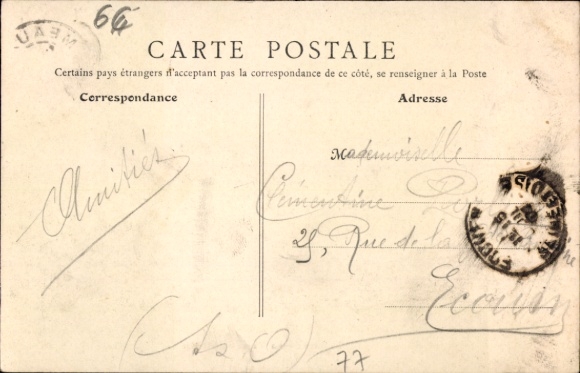 66
MEAU
CARTE POSTALE
Certains pays étrangers n'acceptant pas la correspondance de ce côté, se renseigner à la Poste
Correspondance
Adresse
Amitiés
Mademoiselle
Clémentine
25, Rue de la
Ecouen
(S&O)
77